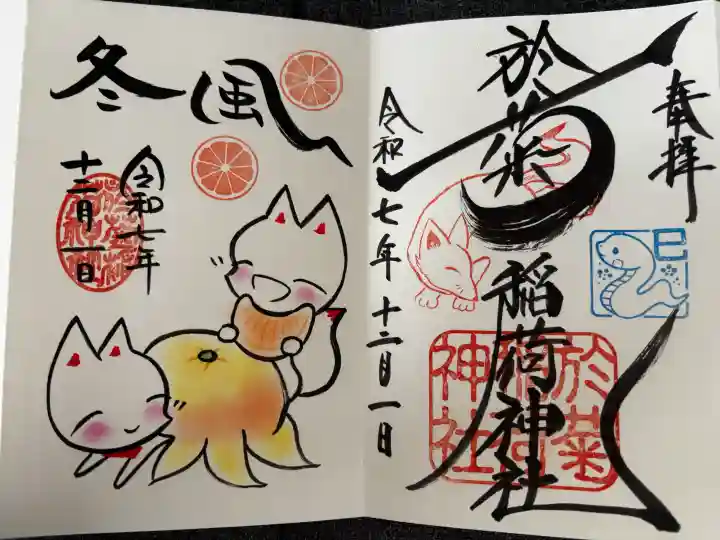 奉拝
於菊稲荷神社
令和七年十二月一日
巳
於菊稲荷神社
冬風
令和七年
十二月一日